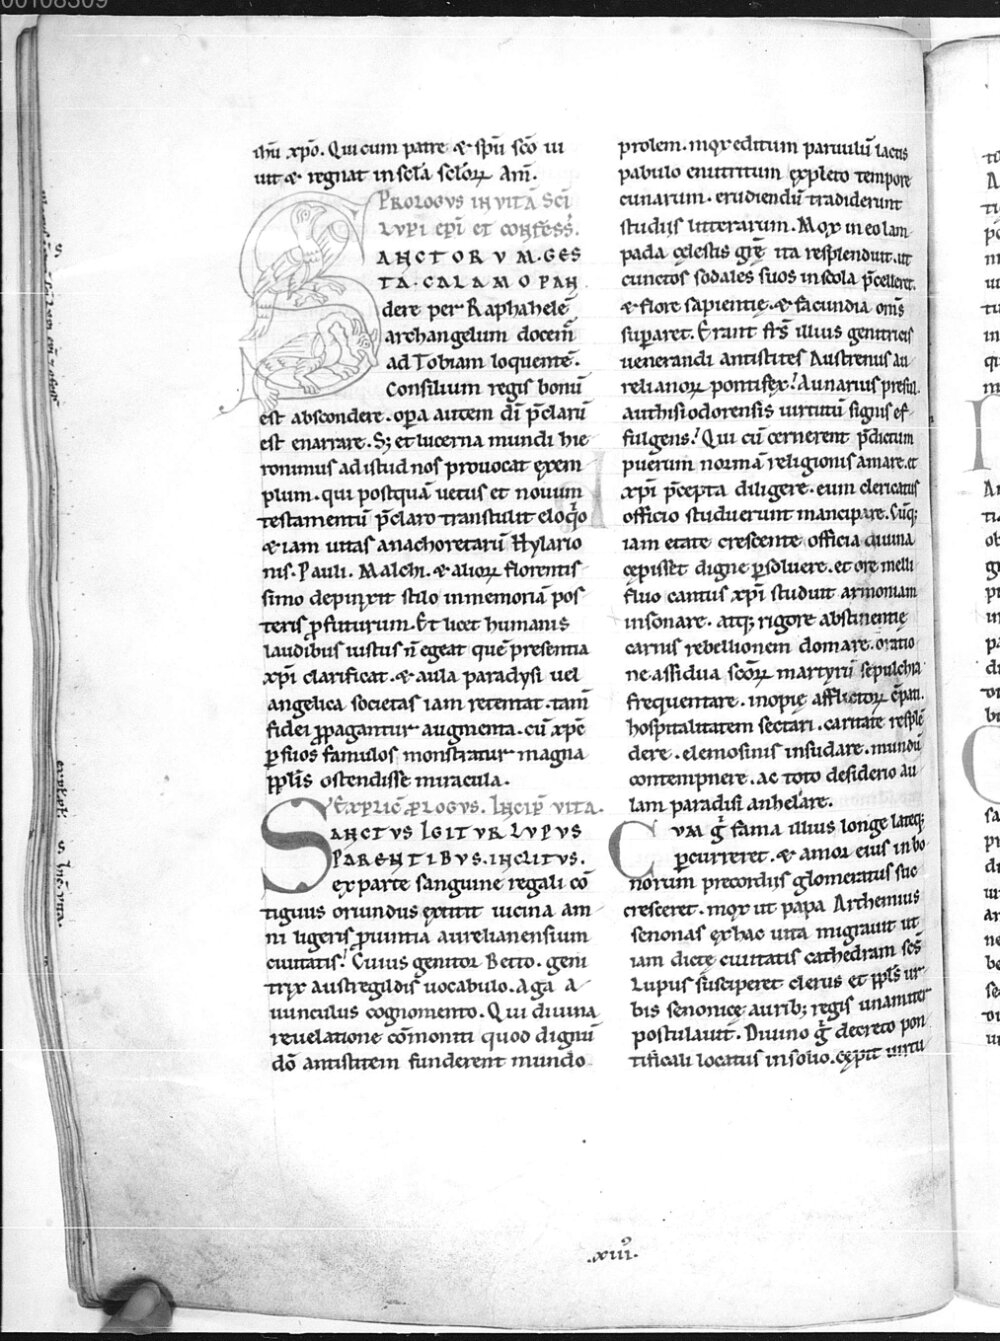 00108309
ihū xpō. Qui cum patre & spū scō ui
uit & regnat in sclā sclōꝝ. Am̄.
PROLOGVS IN VITĀ SCĪ
LVPI EP̄I ET CONFESS̄.
SANCTORVM. GES
TA. CALAMO PAN
dere per Raphahelē
archangelum docem̄
ad Tobiam loquentē.
Consilium regis bonū
est abscondere. opa autem dī p̄clarū
est enarrare. S; et lucerna mundi hie
ronimus ad istud nos prouocat exem
plum. qui postquā uetus et nouum
testamentū p̄claro transtulit eloqͥo
& iam uitas anachoretarū Hylario
nis. Pauli. Malchi. & alioꝝ florentis
simo depinxit stilo in memoriā pos
teris ꝓfuturum. Et licet humanis
laudibus iustus n̄ egeat quē presentia
xpī clarificat. & aula paradysi uel
angelica societas iam retentat. tam̄
fidei ꝓpagantur augmenta. cū xpē
ꝑ suos famulos monstratur magna
ppl̄is ostendisse miracula.
EXPLIC̄ P̄LOGVS. INCIP̄ VITA.
SANCTVS IGITVR LVPVS
PARENTIBVS. INCLITVS.
ex parte sanguine regali cō
tiguus oriundus extitit uicina am
ni ligeris ꝓuintia aurelianensium
ciuitatis! Cuius genitor Betto. geni
trix austregildis uocabulo. Aga a
uunculus cognomento. Qui diuina
reuelatione cōmoniti quod dignū
dō antistitem funderent mundo
prolem. mox editum paruulū lactis
pabulo enutritum expleto tempore
cunarum. erudiendū tradiderunt
studiis litterarum. Mox in eo lam
pada celestis grē ita resplenduit. ut
cunctos sodales suos in scola p̄celleret.
& flore sapientię. & facundia om̄s
suꝑaret. Erant frs̄ illius genitricis
uenerandi antistites Austrenus au
relianoꝝ pontifex! Aunarius presul
authisiodorensis uirtutū signis ef
fulgens! Qui cū cernerent p̄dictum
puerum normā religionis amare. et
xpī p̄cepta diligere. eum clericatus
officio studuerunt mancipare. Cūq;
iam etate crescente officia diuina
cepisset digne ꝑsoluere. et ore melli
fluo cantus xpī studuit armoniam
insonare. atq; rigore abstinentię
carnis rebellionem domare. oratio
ne assidua scōꝝ martyrū sepulchra
frequentare. inopię afflictoꝝ cp̄ati.
hospitalitatem sectari. caritate resplē
dere. elemosinis insudare. mundū
contempnere. ac toto desiderio au
lam paradisi anhelare.
CVM gͦ fama illius longe lateq;
ꝑcurreret. & amor eius in bo
norum precordiis glomeratus suc
cresceret. mox ut papa Arthemius
senonas ex hac uita migrauit ut
iam dictę ciuitatis cathedram scs̄
Lupus susciperet clerus et ppl̄s ur
bis senonice aurib; regis unanimiter
postulauit. Diuino gͦ decreto pon
tificali locatus in solio. cepit uirtu
.xiii.